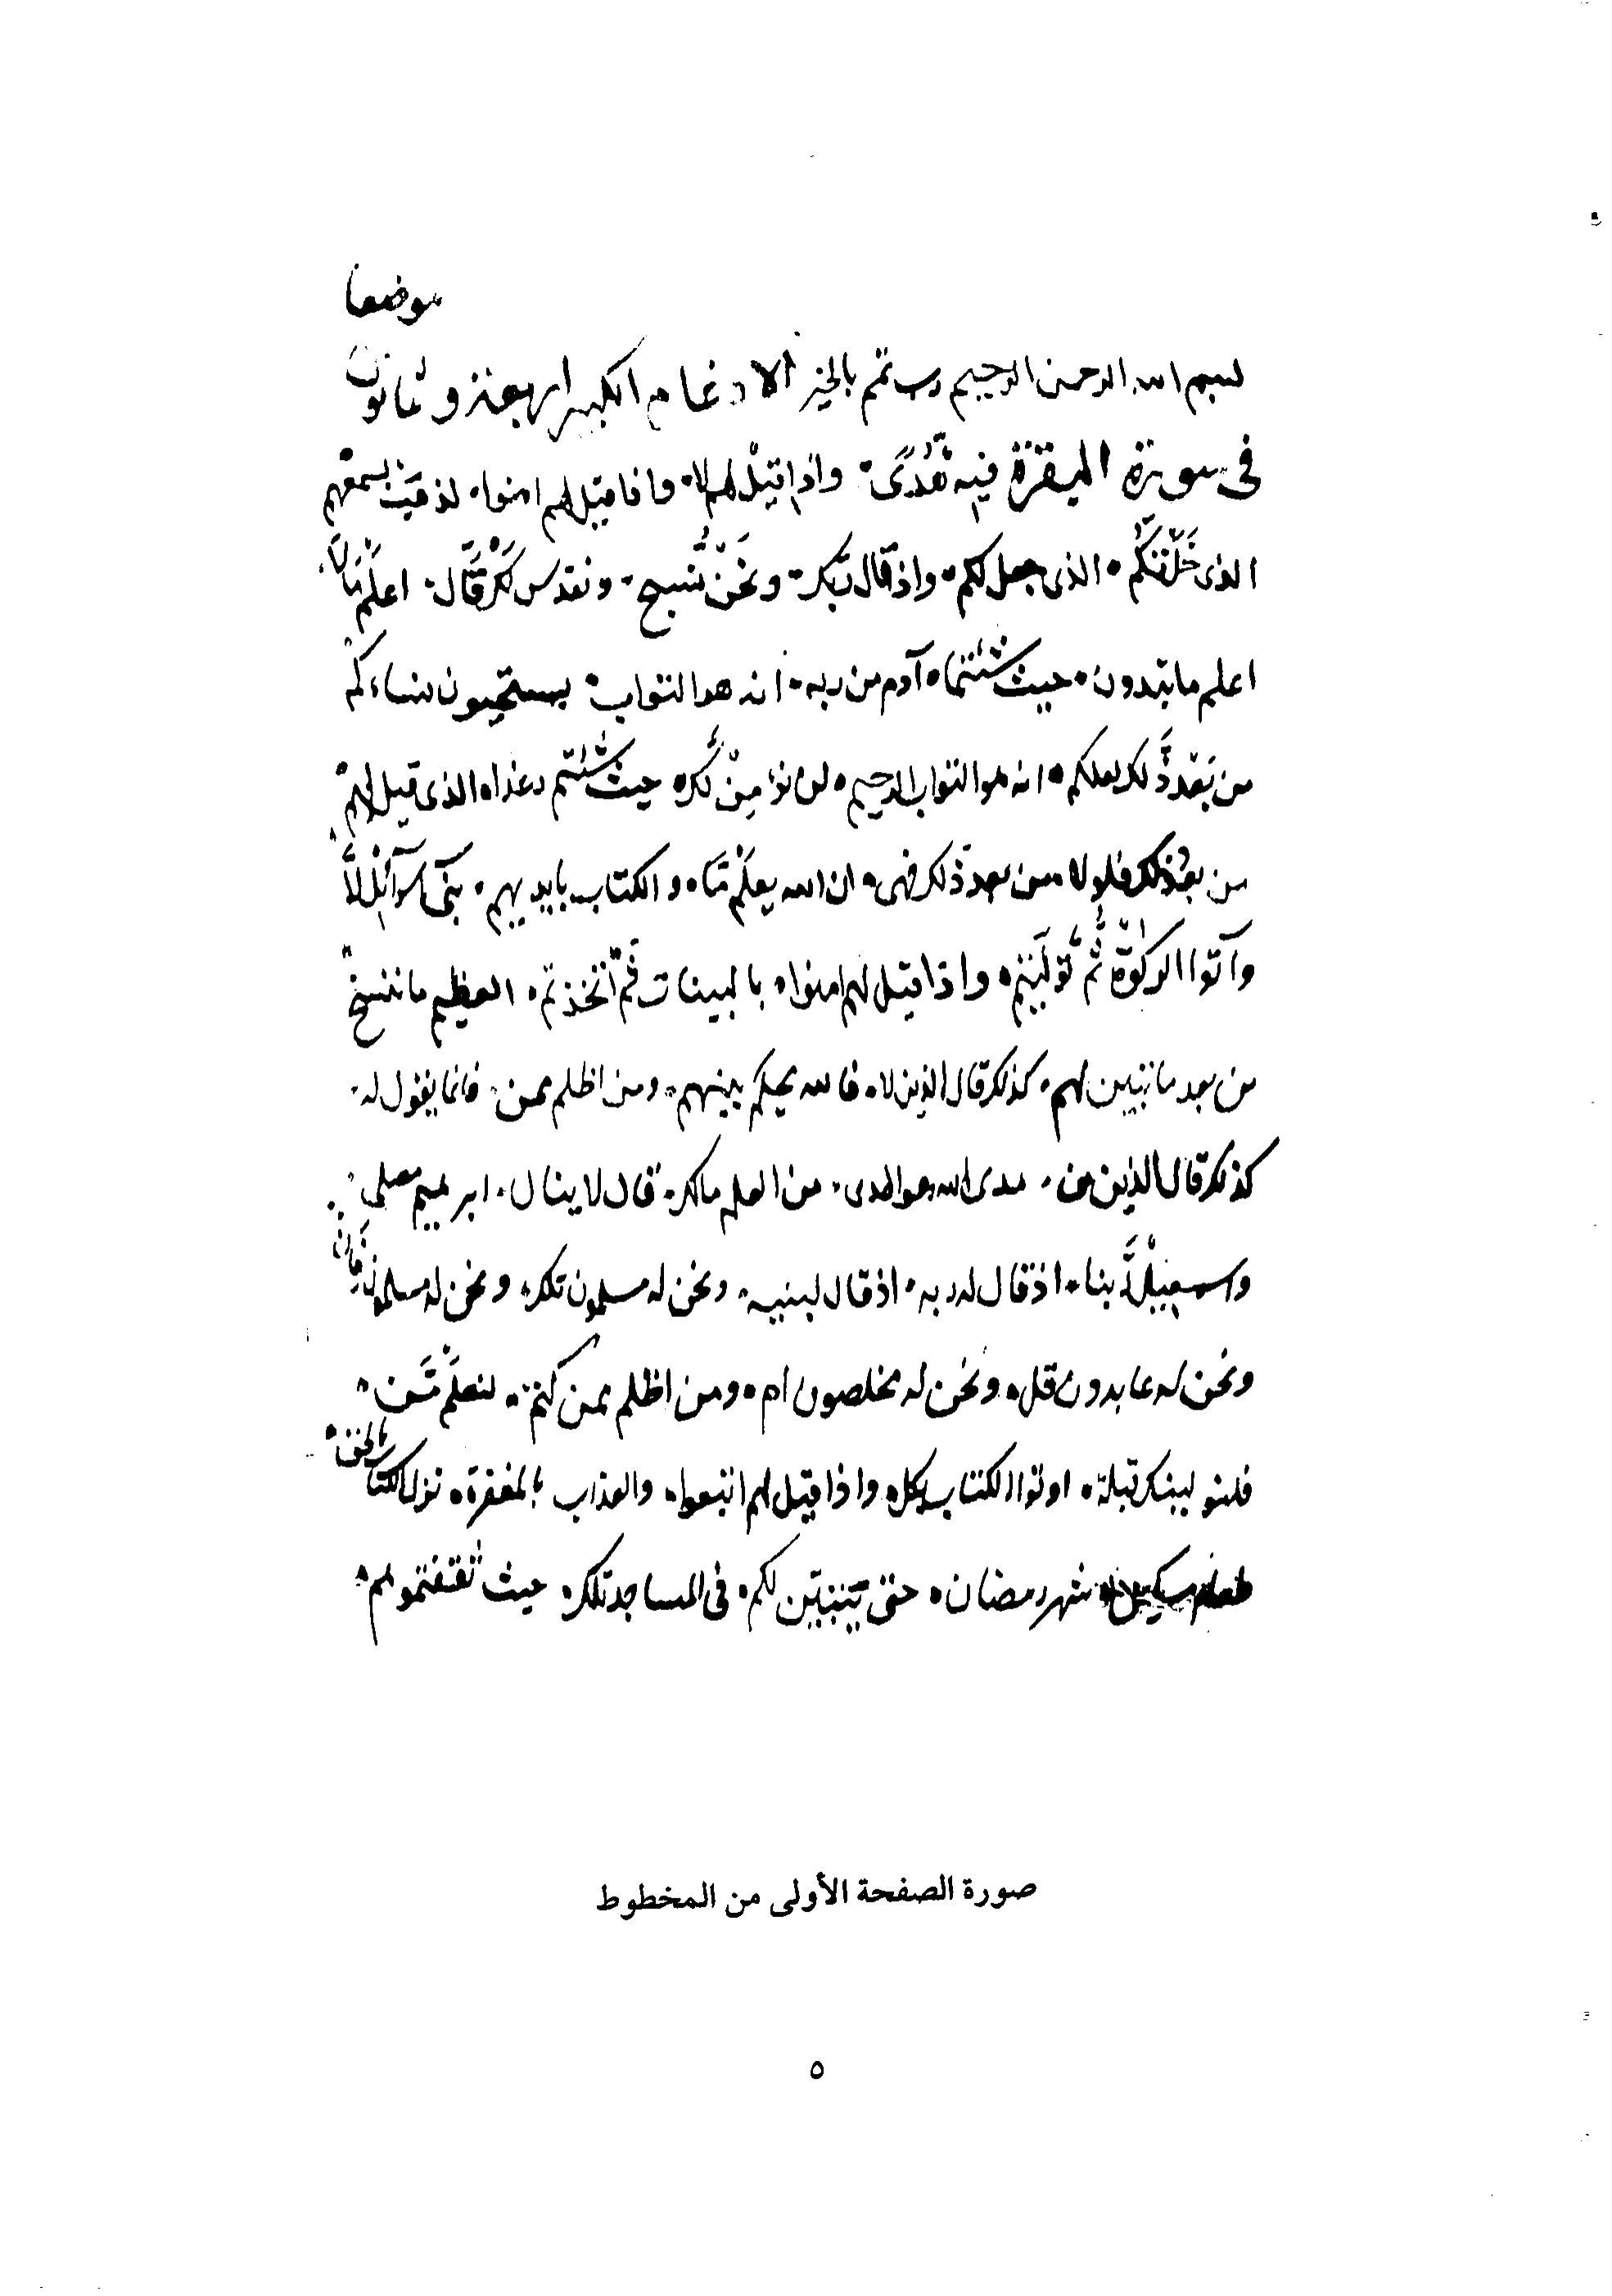 موضعا
بسم الله الرحمن الرحيم رب تمم بالخير الادغام الكبير اربعة وثمانون
فى سورة البقرة فيه هُدًى واذا قيل لهم لا واذا قيل لهم امنوا لذهب بسمعهم
الذى خَلَقكُّم الذى جعل لكم واذ قال رَبك ونَحْن نُّسبح ونقدس لكْ قَّال اعلمْ مَّالا
اعلم ما تبدون حيث شئتما آدم من ربه انه هو التواب يستحيون نساءكم
من بَعْد ذَّلك لعلكم انه هو التواب الرحيم لن نؤمِنْ لَّك حيث شئتم رغدا الذى قيل لهم
من بعد ذلك فلولا من بعد ذَّلك فهى ان الله يعلمْ مَّا الكتاب بايديهم بنى اسرآئلْ لاَّ
وآتوا الزكوة ثُّم تولَيتم واذا قيل لهم امنوا بالبينات ثُم اتخذتم العظيم ما ننسخْ
من بعد ما تبين لهم كذلك قال الذين لا فالله يحكم بينهم ومن اظلم ممن فانما يقول له
كذلك قال الذين من هدى الله هو الهدى من العلم مالك قال لا ينال ابرهيم مصلى
واسمعيلْ رَّبنا اذ قال له ربه اذ قال لبنيه ونحن له مسلمون تلك ونحن له مسلمون فَان
ونحن له عابدون قل ونحن له مخلصون ام ومن اظلم ممن كتم لنعلَمْ مَّن
فلنولينك قبلة اوتوا الكتاب بكل واذا قيل لهم اتبعوا والعذاب بالمغفرة نزل الكتاب بالحق
شهر رمضان حتى يَتبيَّن لكم فى المساجد تلك حيث ثقفتموهم
صورة الصفحة الأولى من المخطوط
٥